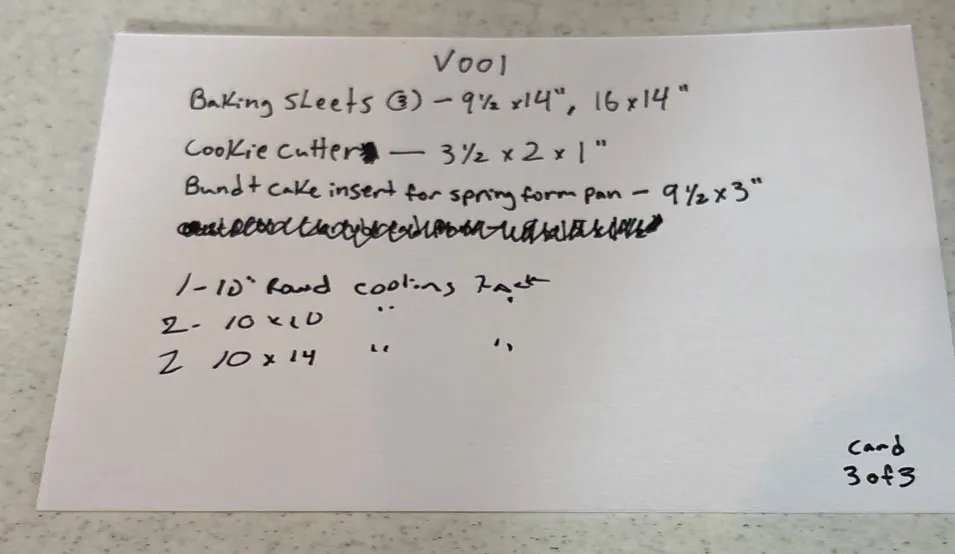 V001
Baking Sheets (3) - 9 1/2 x 14", 16 x 14"
Cookie Cutter — 3 1/2 x 2 x 1"
Bundt cake insert for spring form pan - 9 1/2 x 3"
1 - 10" Round cooling Rack
2 - 10 x 10 " "
2 10 x 14 " "
Card
3 of 3